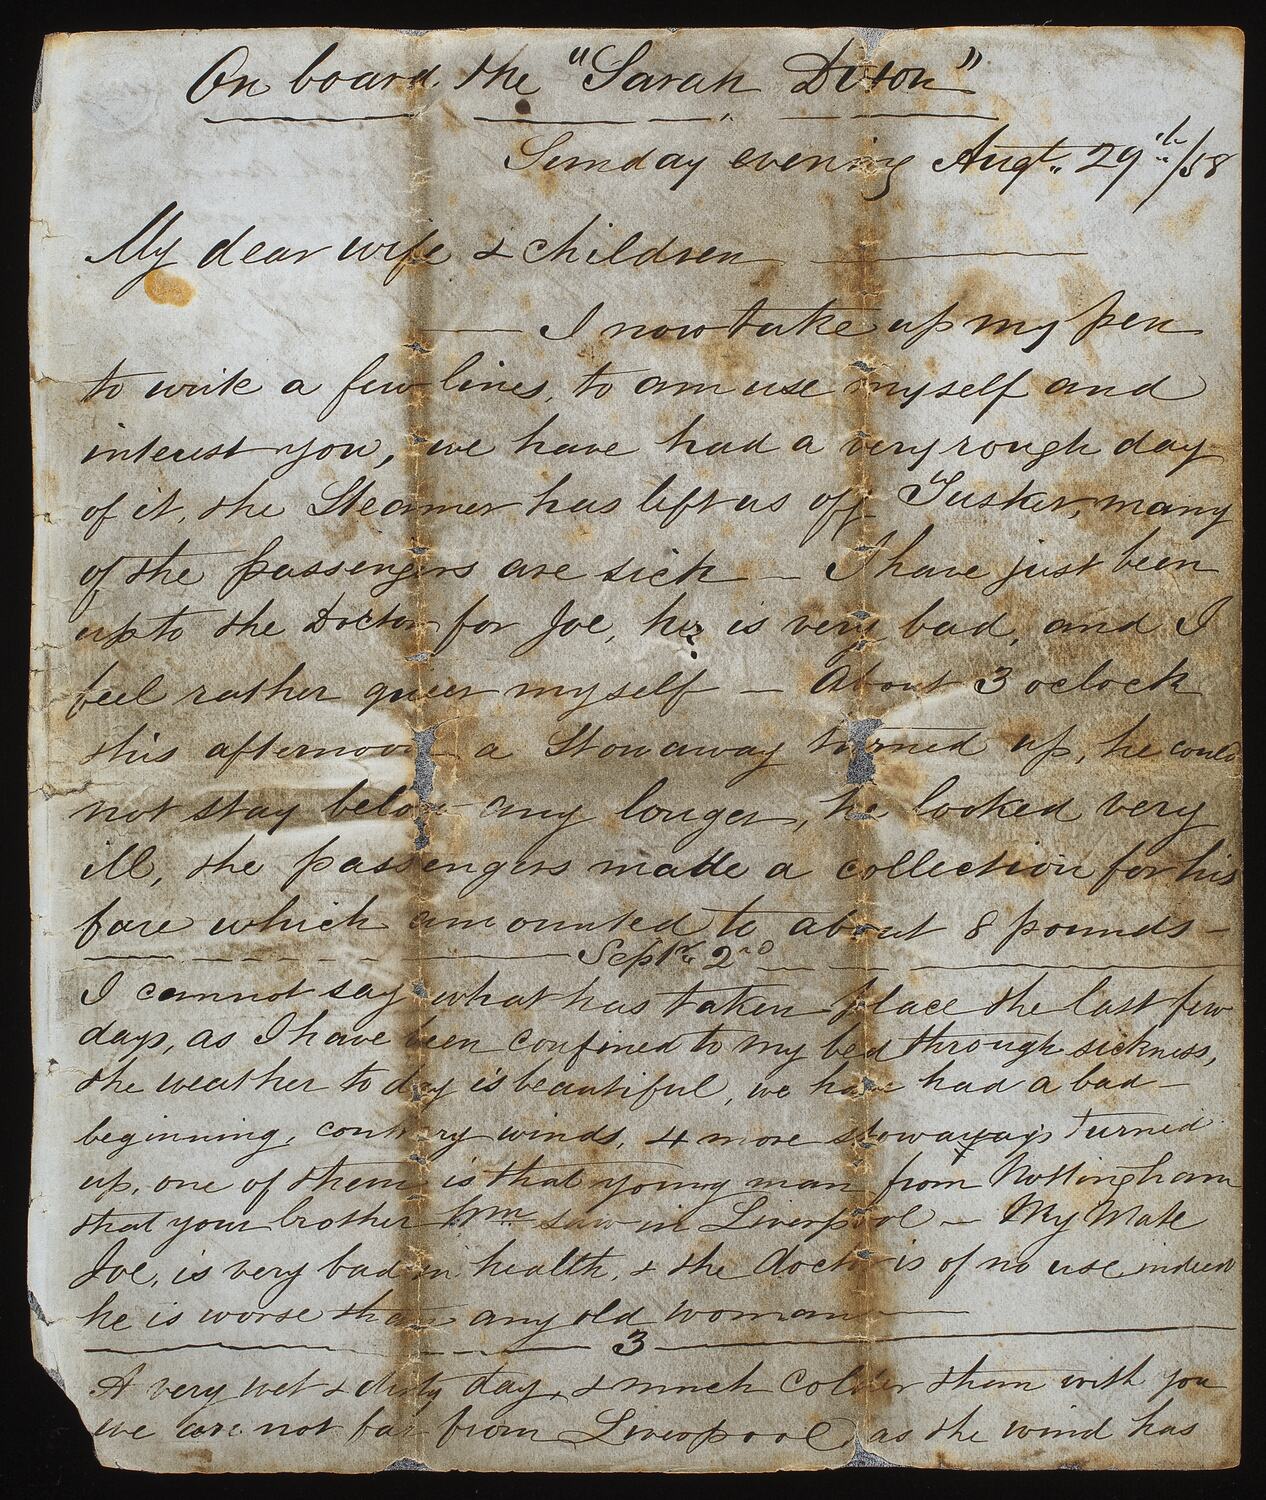 On board the "Sarah Dixon"
Sunday evening Augt. 29th/58
My dear wife & children
I now take up my pen
to write a few lines, to amuse myself and
interest you, we have had a very rough day
of it, the Steamer has left us off Tusker, many
of the passengers are sick — I have just been
up to the Doctor for Joe, he is very bad, and I
feel rather queer myself — About 3 oclock
this afternoon a Stowaway turned up, he could
not stay below any longer, he looked very
ill, the passengers made a collection for his
fare which amounted to about 8 pounds —
Septr. 2nd
I cannot say what has taken place the last few
days, as I have been confined to my bed through sickness,
the weather to day is beautiful, we have had a bad
beginning, contrary winds, 4 more stowaways turned
up, one of them is that young man from Nottingham
that your brother Wm saw in Liverpool — My Mate
Joe, is very bad in health, & the doctor is of no use indeed
he is worse than any old woman
3
A very wet & dirty day, & much colder them with you
we are not far from Liverpool, as the wind has